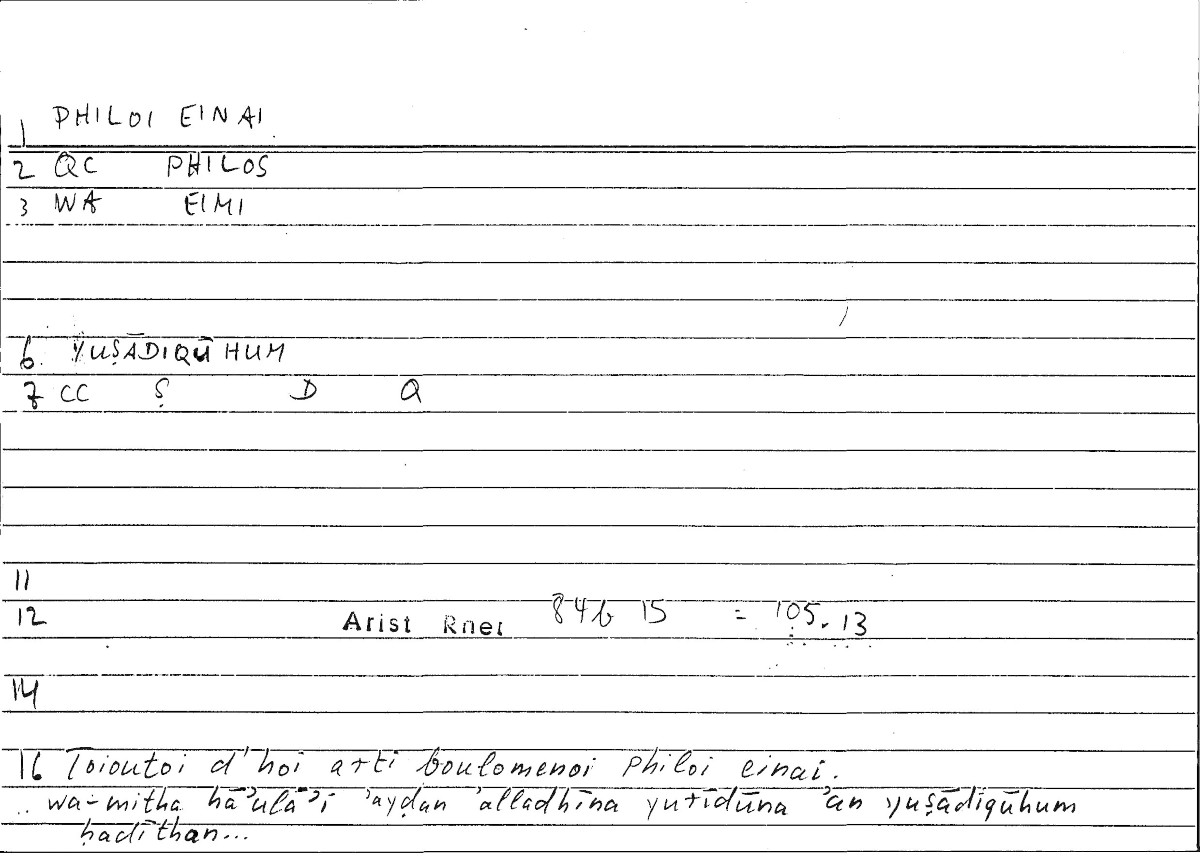 1 PHILOI EINAI
2 QC PHILOS
3 WA EIMI
6. YUṢĀDIQŪHUM
7 CC Ṣ D Q
11
12 Arist Rhet 84b 15 = 105.13
14
16 Toioutoi d'hoi arti boulomenoi philoi einai.
.. wa-mitha hā'ulā'i 'ayḍan 'alladhīna yurīdūna 'an yuṣādiqūhum
ḥadīthan...